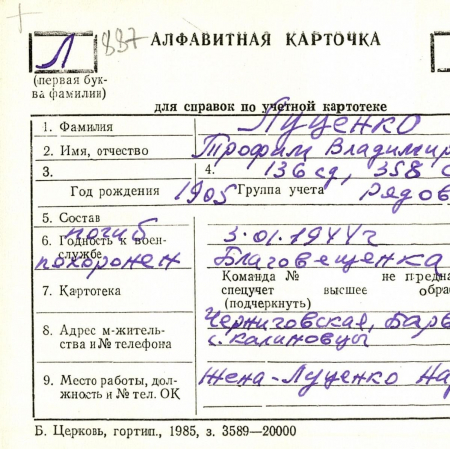 Л 887
АЛФАВИТНАЯ КАРТОЧКА
(первая бук-
ва фамилии)
для справок по учетной картотеке
1. Фамилия Луценко
2. Имя, отчество Трофим Владимир
3. 4. 136 сд, 358 с
Год рождения 1905 Группа учета Рядов
5. Состав
погиб 3.01.1944г
6. Годность к воен-
службе
похоронен Благовещенка
Команда № не предна
7. Картотека спецучет высшее обра
(подчеркнуть)
8. Адрес м-житель- Черниговская, Барв
ства и № телефона с. Калиновцы
9. Место работы, дол- жена-Луценко На
жность и № тел. ОК
Б. Церковь, гортип., 1985, з. 3589—20000